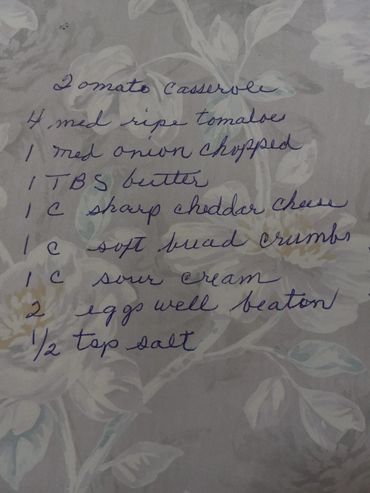 Tomato Casserole
4 med ripe tomatoes
1 med onion chopped
1 TBS butter
1 c sharp cheddar cheese
1 c soft bread crumbs
1 c sour cream
2 eggs well beaton
1/2 tsp salt